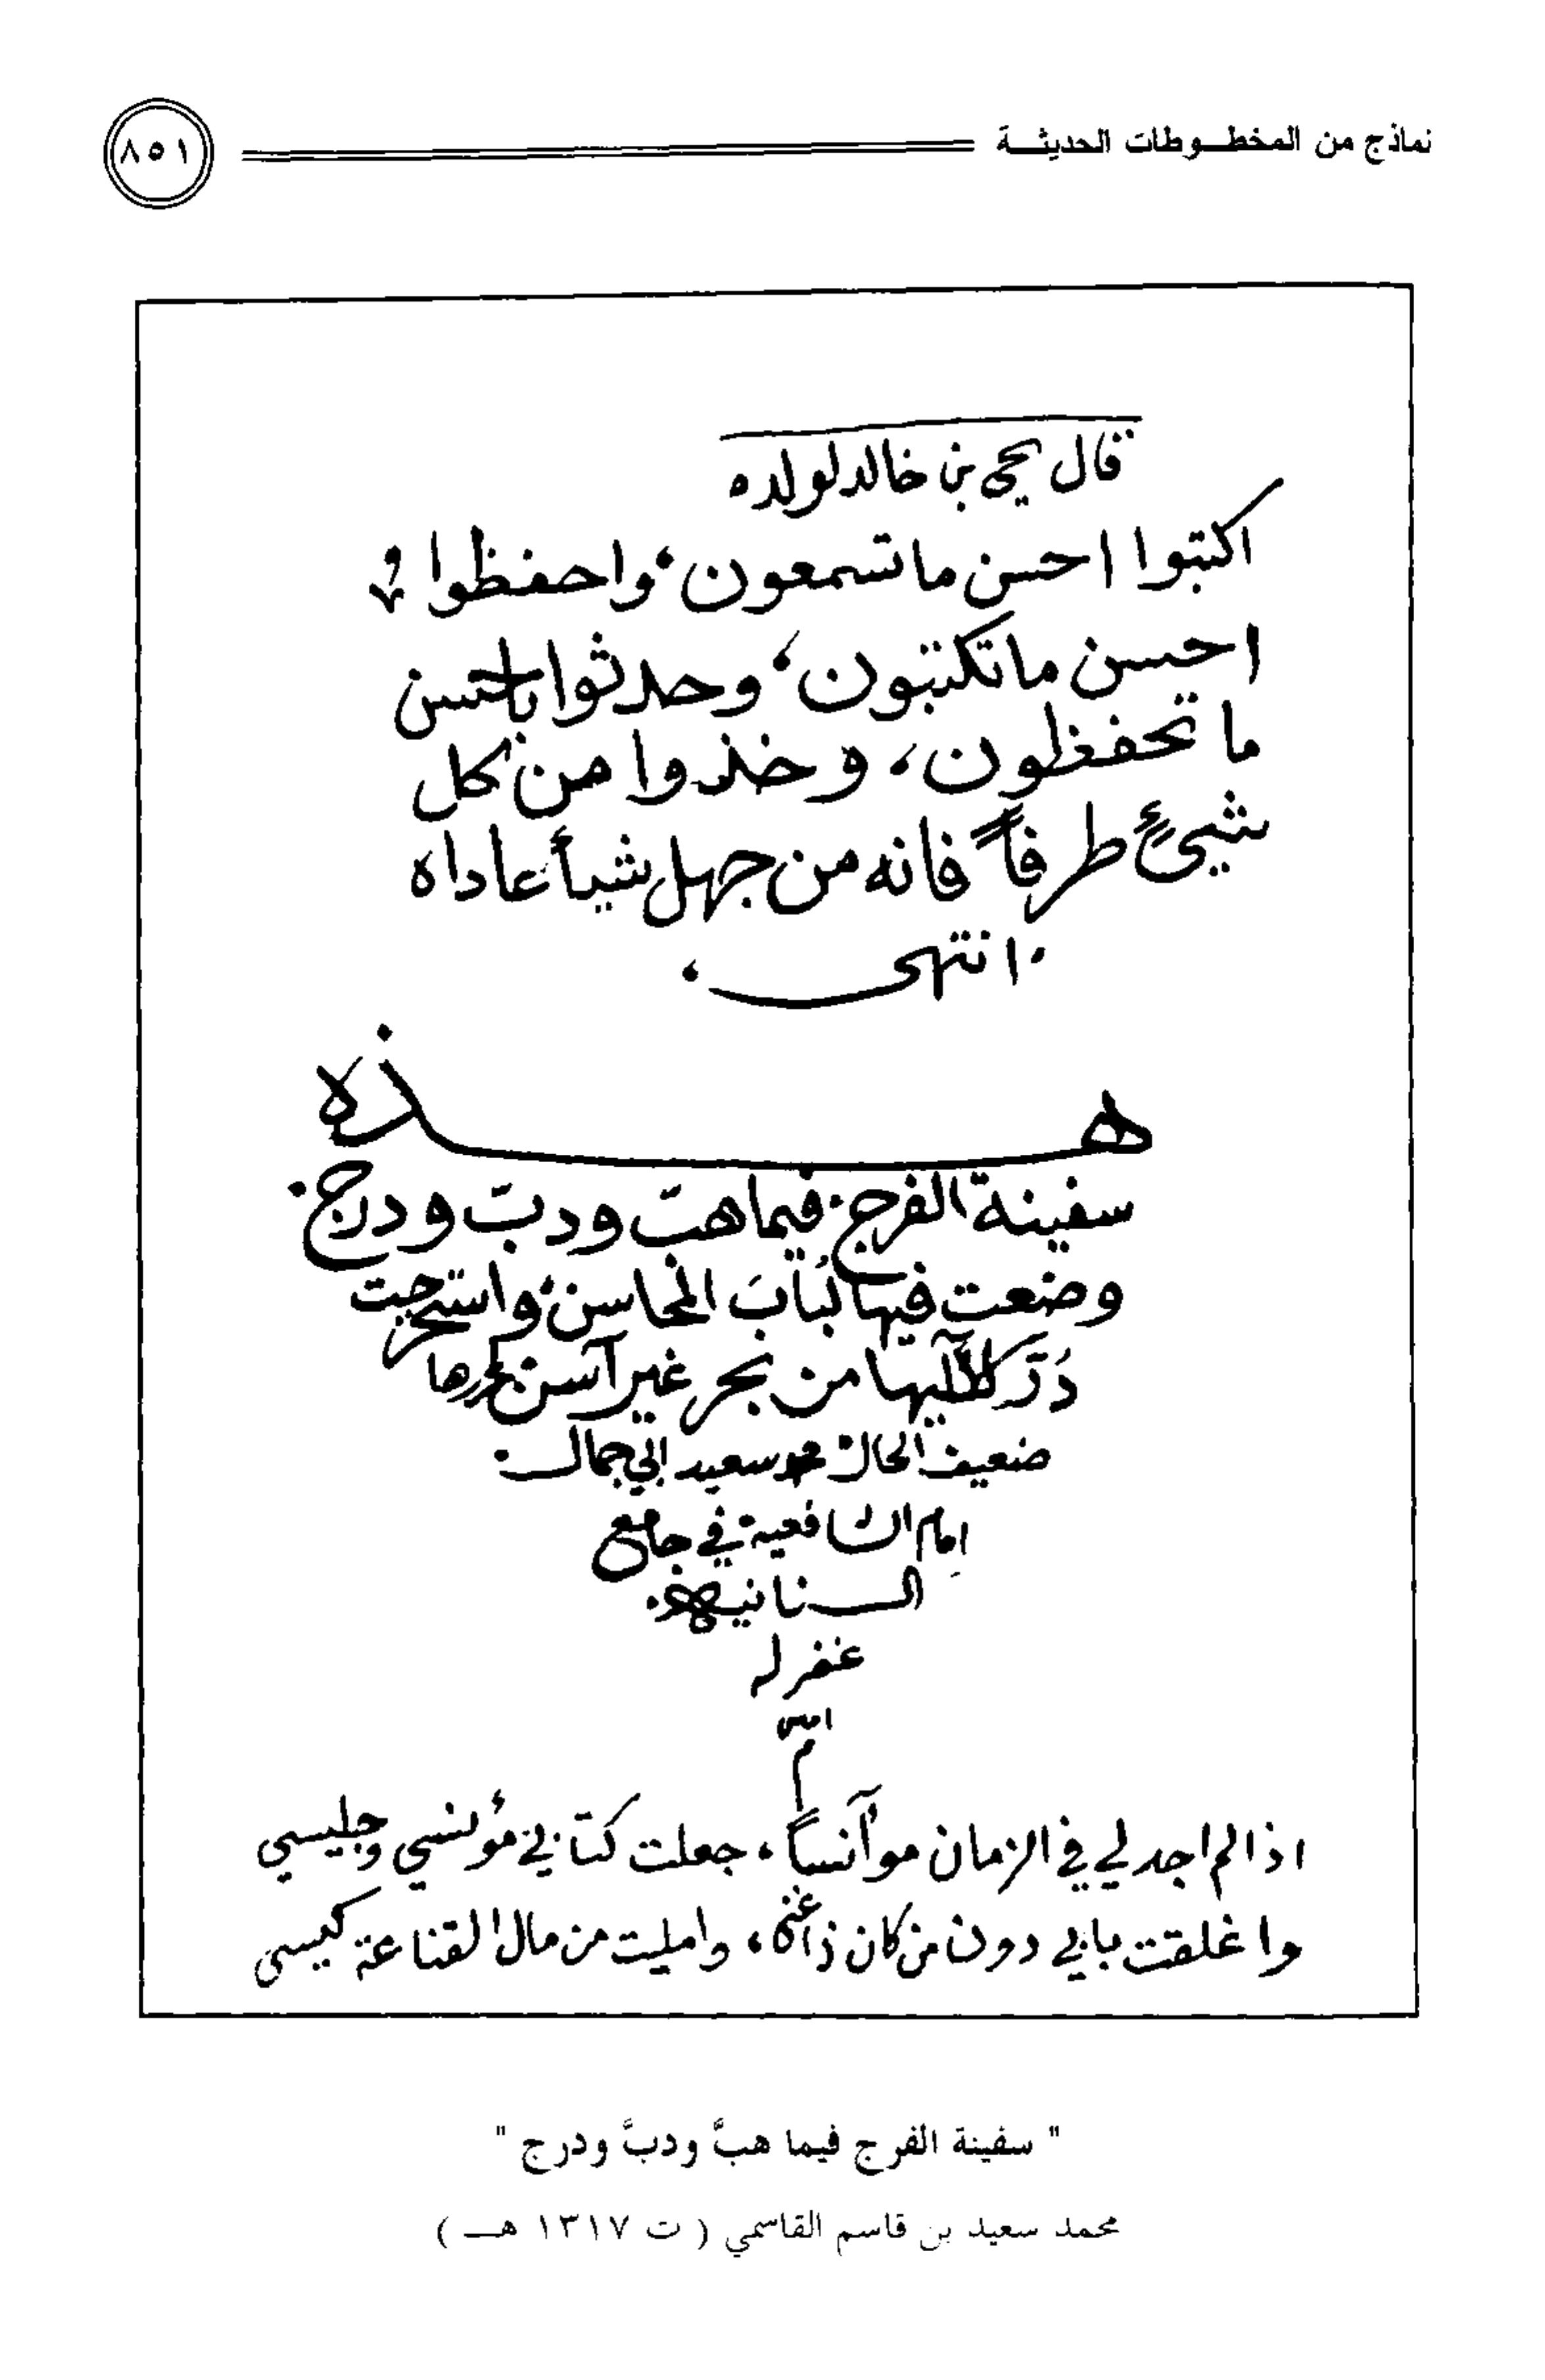 نماذج من المخطوطات الحديثة
٨٥١
قال يحيى بن خالد لولده
اكتبوا احسن ما تسمعون، واحفظوا
احسن ما تكتبون، وحدثوا باحسن
ما تحفظون، وخذوا من كل
شيئٍ طرفاً فانه من جهل شيأ عاداه
انتهى
هذه
سفينة الفرج فيما هبّ ودبّ ودرج
وضعت فيها لُبابَ المحاسن واستخرجت
دُرّ من بحر غير آسن
ضعيف الحال محمد سعيد ابي جمال
اِمام الشافعية في جامع
السنانيه
غفر له
اذا لم اجد لي في الزمان موآنساً، جعلت كتابي مؤنسي وجليسي
واغلقت بابي دون من كان ذا غنى، وامليت من مال القناعة كيسي
" سفينة الفرج فيما هبَّ ودبَّ ودرج "
محمد سعيد بن قاسم القاسمي ( ت ١٣١٧ هـ )